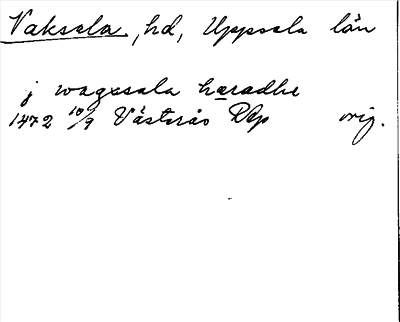 Vaksala, hd, Uppsala län
j wagxsala hæradhe
1472 10/9 Västerås Dep orig.